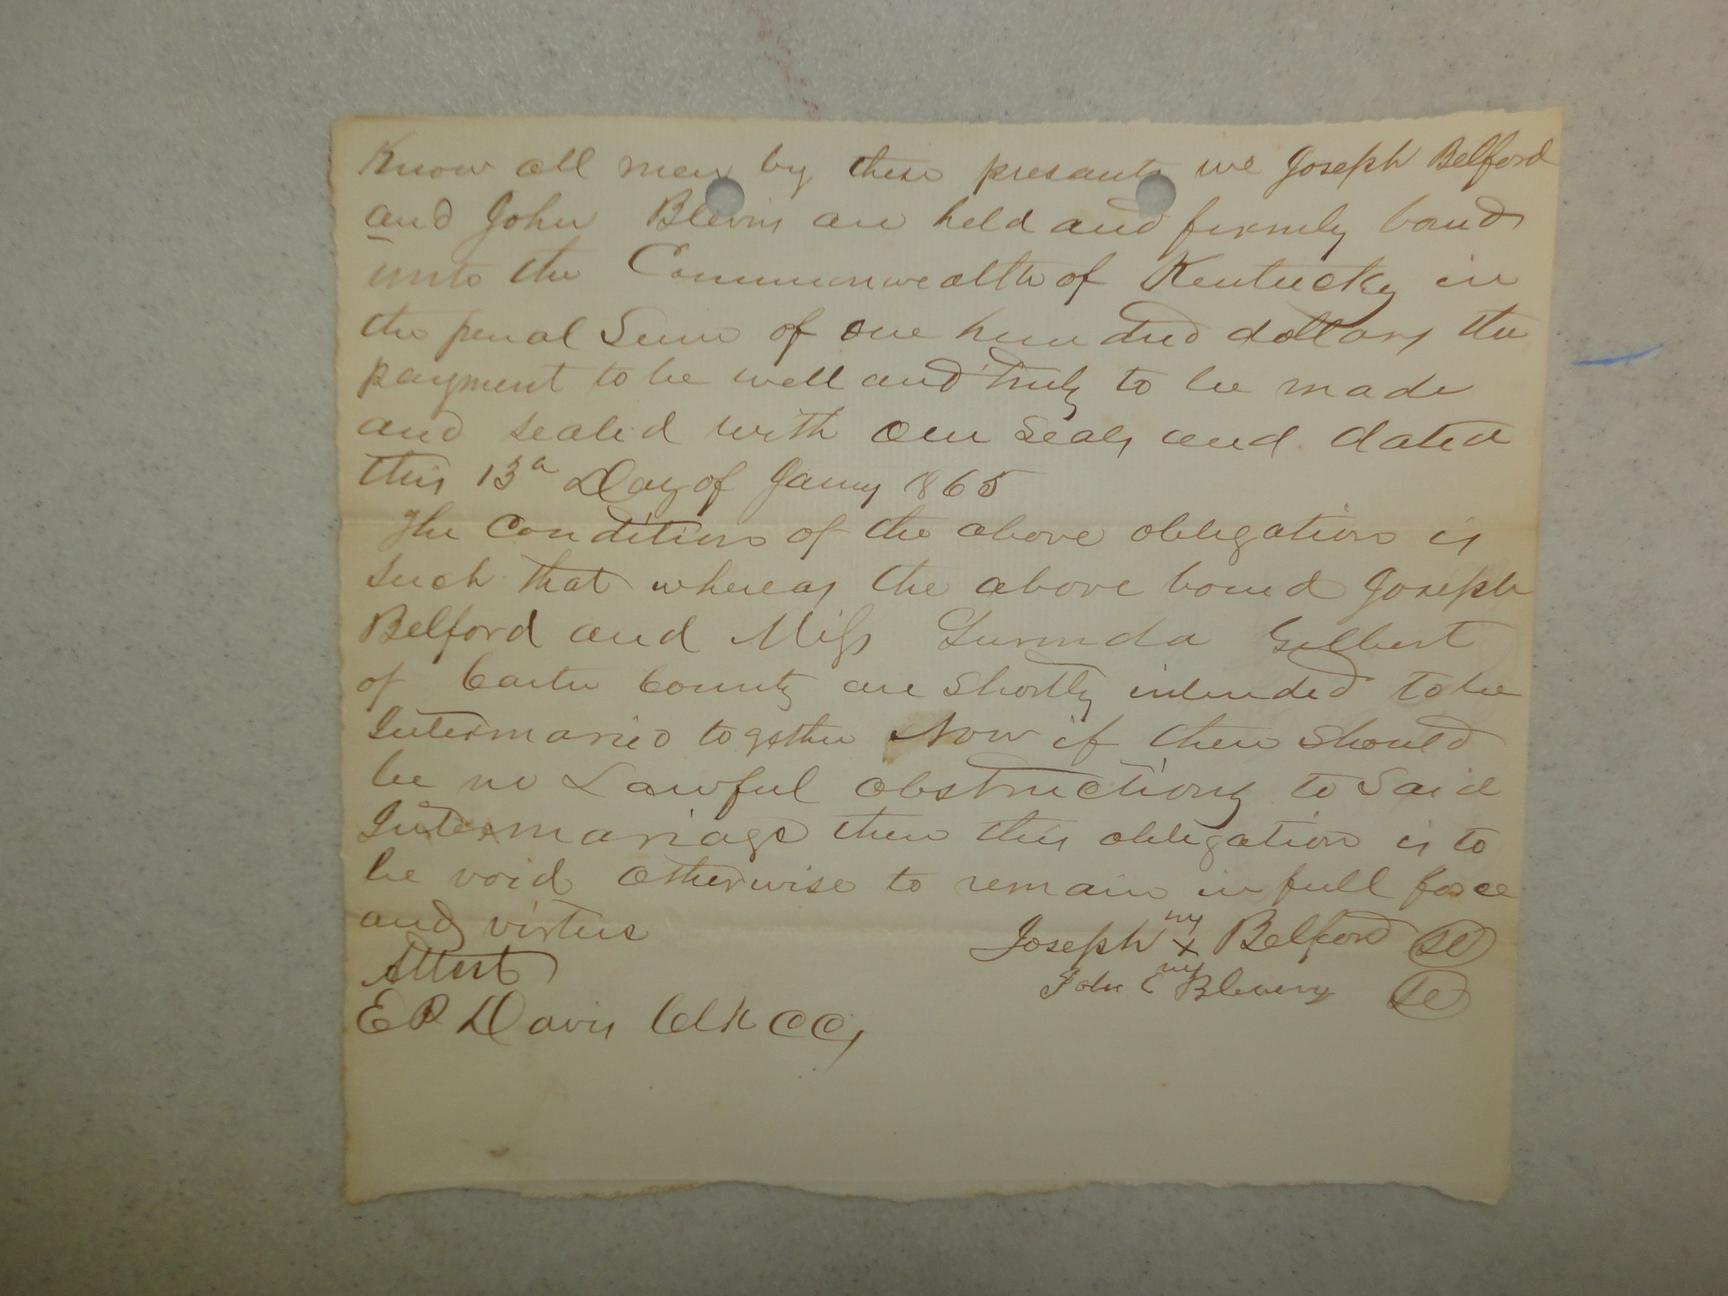 Know all men by these presants we Joseph Belford
and John Blevins are held and firmly bound
unto the Commonwealth of Kentucky in
the penal Sum of one hundred dollars the
payment to be well and truly to be made
and sealed with our seals and dated
this 13th Day of Jany 1865
The Condition of the above obligation is
such that whereas the above bound Joseph
Belford and Miss Gilbert
of Carter County are shortly intended to be
Intermaried together Now if there should
be no Lawful obstructions to said
Intermariage then this obligation is to
be void otherwise to remain in full force
and virtue
Joseph x Belford
John Blevins
Attest
E P Davis Clk CC